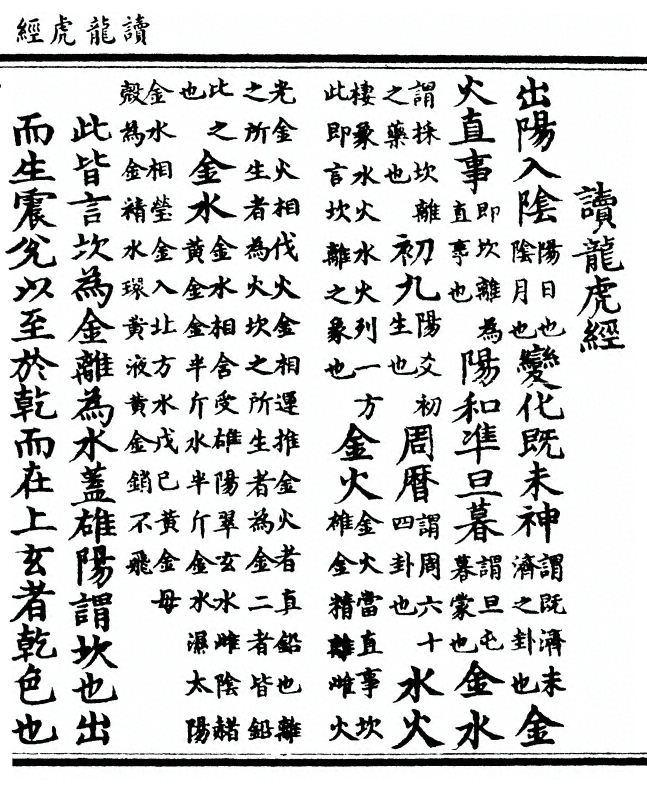 讀龍虎經
讀龍虎經
出陽入陰陽日也陰月也變化既未神謂既濟未濟之卦也金
火直事即坎離為直事也陽和凖旦暮謂旦屯暮蒙也金水
謂採坎離之藥也初九陽爻初生也周曆謂周六十四卦也水火
棲象水火水火列一方此即言坎離之象也金火金火當直事坎雄金精離雌火
光金火相伐火金相運推金火者直鉛也離之所生者為火坎之所生者為金二者皆鉛
此之也金水金水相含受雄陽翠玄水雌陰赭黃金金半斤水半斤金水濕太陽
金水相瑩金入北方水戊己黃金母殼為金精水環黃液黃金銷不飛
此皆言坎為金離為水蓋雄陽謂坎也出
而生震兌以至於乾而在上玄者乾色也